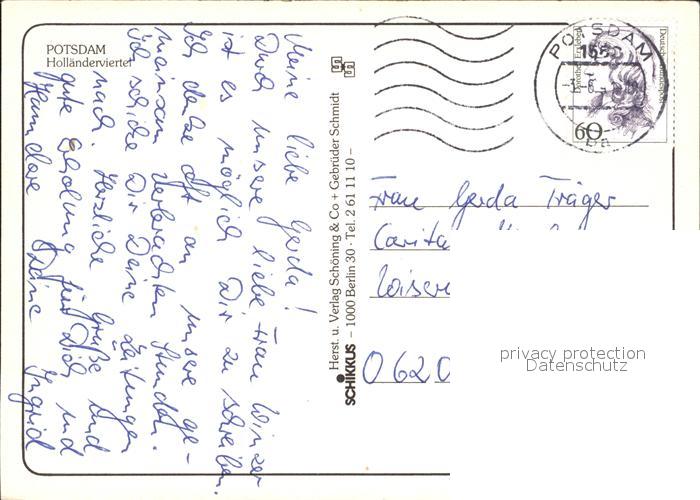 POTSDAM
Holländerviertel
Meine liebe Gerda!
Durch unsere liebe Frau Winzer
ist es möglich Dir zu schreiben.
Ich denke oft an unsere ge-
meinsam verbrachten Stunden.
Ich schicke Dir Deine Zeitungen
nach. Herzliche Grüße und
gute Erholung für Dich und
Hannelore Deine Ingrid
Herst. u. Verlag Schöning & Co + Gebrüder Schmidt
SCHIKKUS – 1000 Berlin 30 · Tel. 2 61 11 10 –
POTSDAM
60
Frau Gerda Träger
Carita
Wiesen
0620
privacy protection
Datenschutz